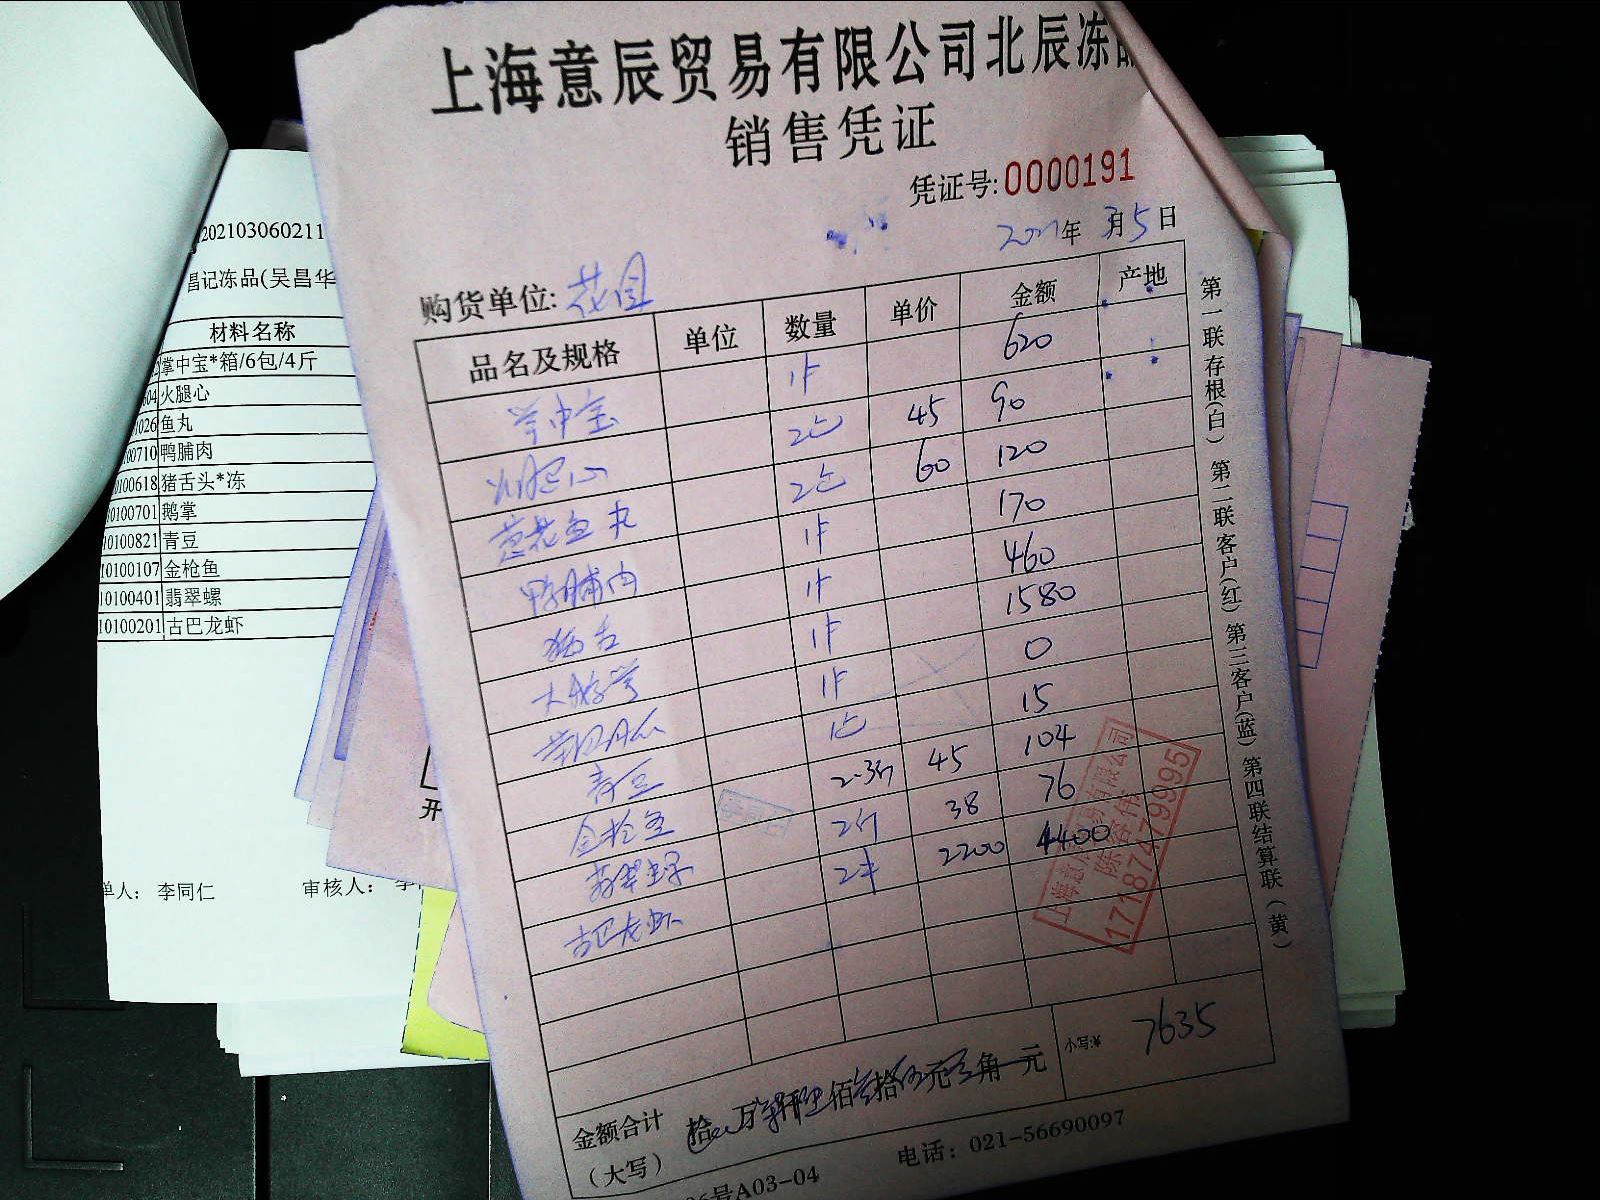 上海意辰贸易有限公司北辰冻品
销售凭证
凭证号:0000191
2021年 3月5日
购货单位:
品名及规格 单位 数量 单价 金额 产地
掌中宝 1件 620
火腿心 2包 45 90
葱花鱼丸 2包 60 120
鸭脯肉 1件 170
猪舌 1件 460
大鹅掌 1件 1580
1件 0
青豆 1包 15
金枪鱼 2.3斤 45 104
翡翠螺 2斤 38 76
古巴龙虾 2件 2200 4400
金额合计
(大写)
拾 万 仟 佰 拾 元 角 元
小写:¥ 7635
号A03-04
电话：021-56690097
第一联存根(白) 第二联客户(红) 第三客户(蓝) 第四联结算联(黄)
17187479995
202103060211
昌记冻品(吴昌华
材料名称
掌中宝*箱/6包/4斤
火腿心
026 鱼丸
00710 鸭脯肉
0100618 猪舌头*冻
10100701 鹅掌
10100821 青豆
10100107 金枪鱼
10100401 翡翠螺
10100201 古巴龙虾
单人： 李同仁
审核人： 李
开